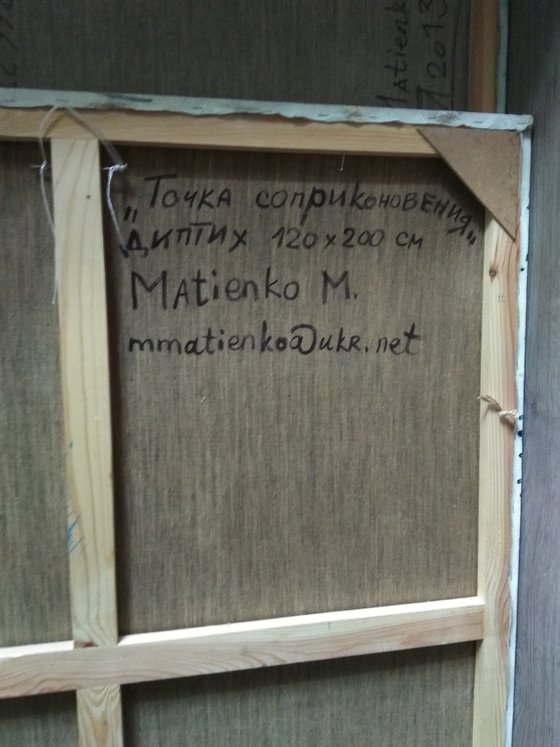 Matienko
2013
„Точка соприконовения"
диптих 120x200 см
Matienko M.
mmatienko@ukr.net